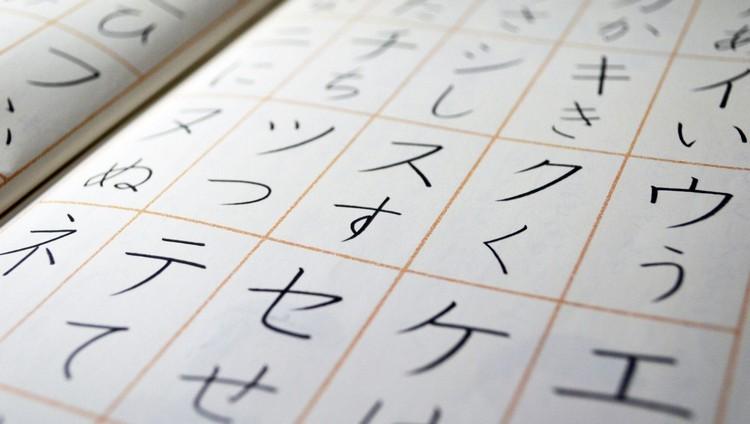 あイいウうエ
かキきクくケ
さシしスすセせ
たチちツつテて
ニにヌぬネ
ひフ